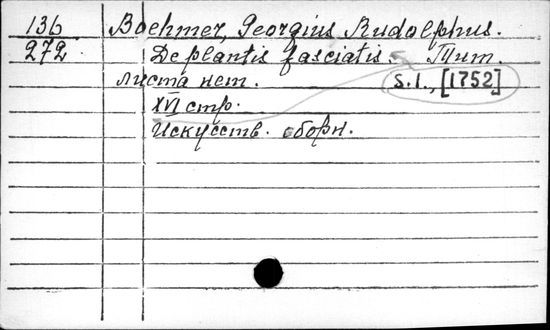 136 Boehmer, Georgius Rudolphus.
272 De plantis fasciatis. Тит.
листа нет. S.l., [1752]
XVI стр.
Искусств. сборн.